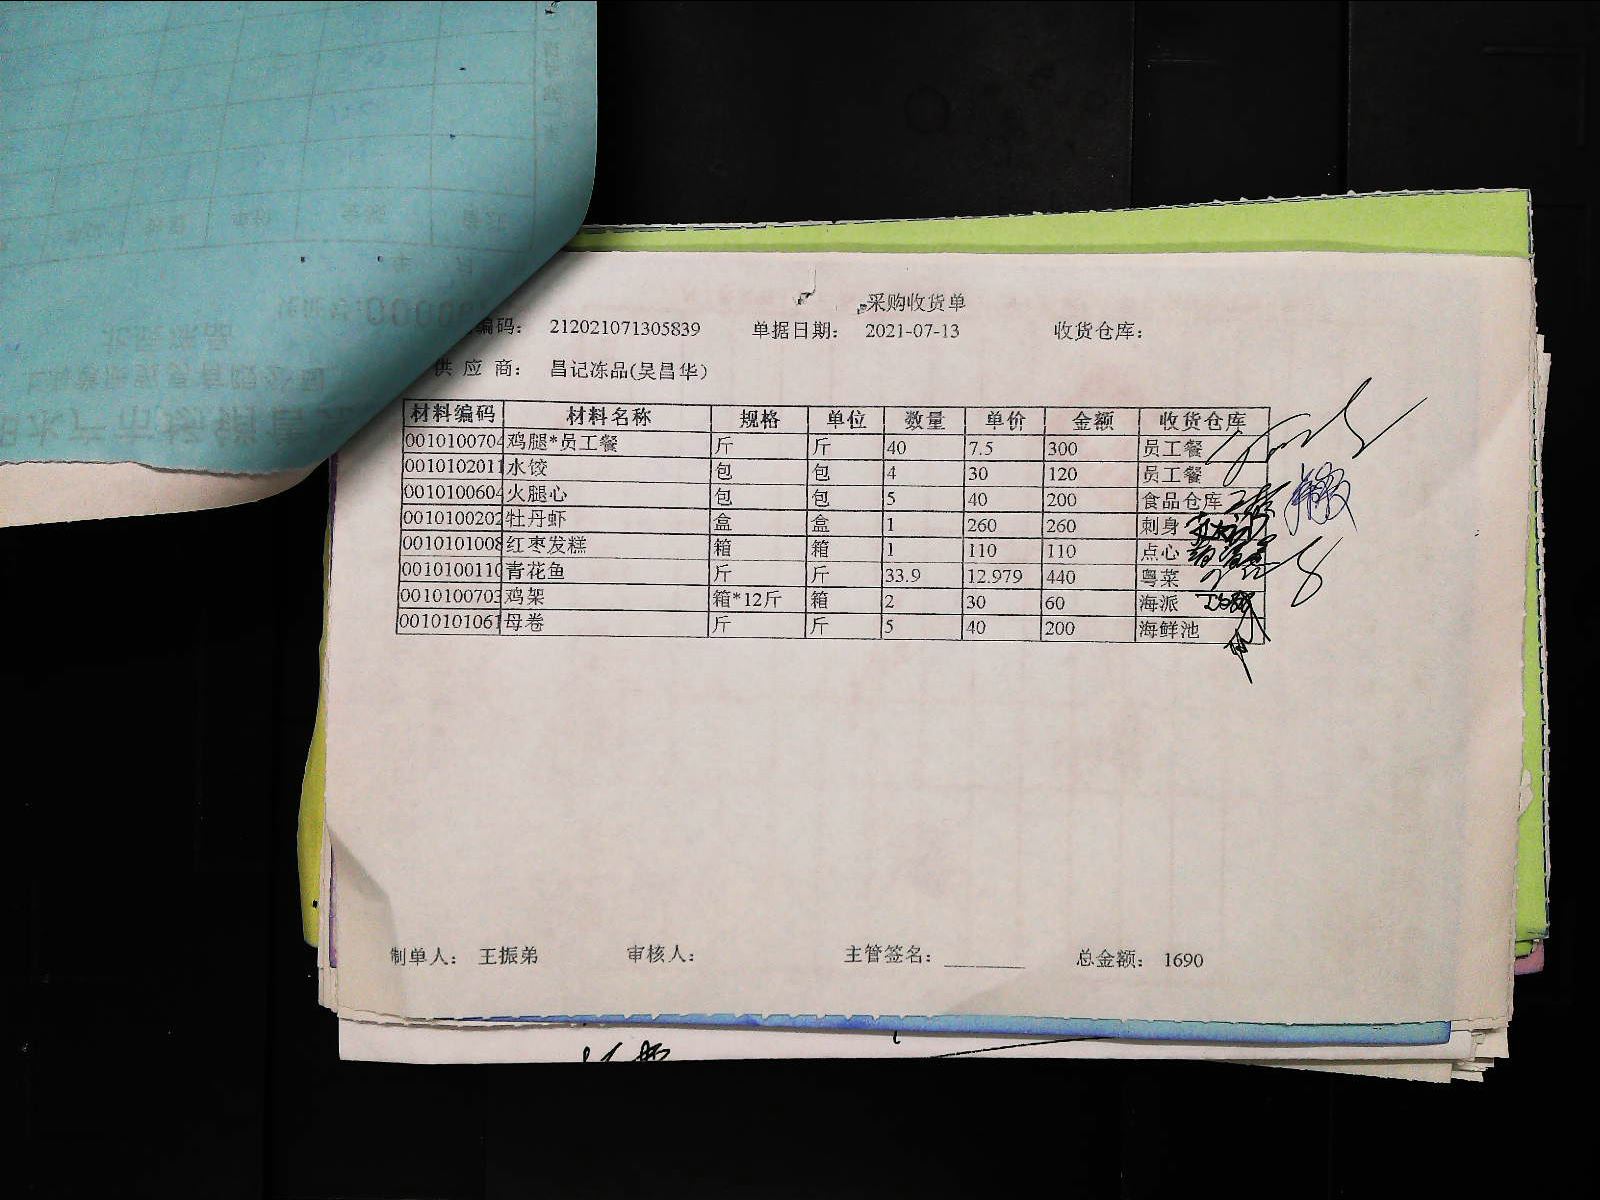 采购收货单
编码： 212021071305839 单据日期： 2021-07-13 收货仓库：
供 应 商： 昌记冻品(吴昌华)
材料编码 材料名称 规格 单位 数量 单价 金额 收货仓库
0010100704 鸡腿*员工餐 斤 斤 40 7.5 300 员工餐
0010102011 水饺 包 包 4 30 120 员工餐
0010100604 火腿心 包 包 5 40 200 食品仓库
0010100202 牡丹虾 盒 盒 1 260 260 刺身
0010101008 红枣发糕 箱 箱 1 110 110 点心
0010100110 青花鱼 斤 斤 33.9 12.979 440 粤菜
0010100703 鸡架 箱*12斤 箱 2 30 60 海派
0010101061 母卷 斤 斤 5 40 200 海鲜池
制单人： 王振弟 审核人： 主管签名： 总金额： 1690